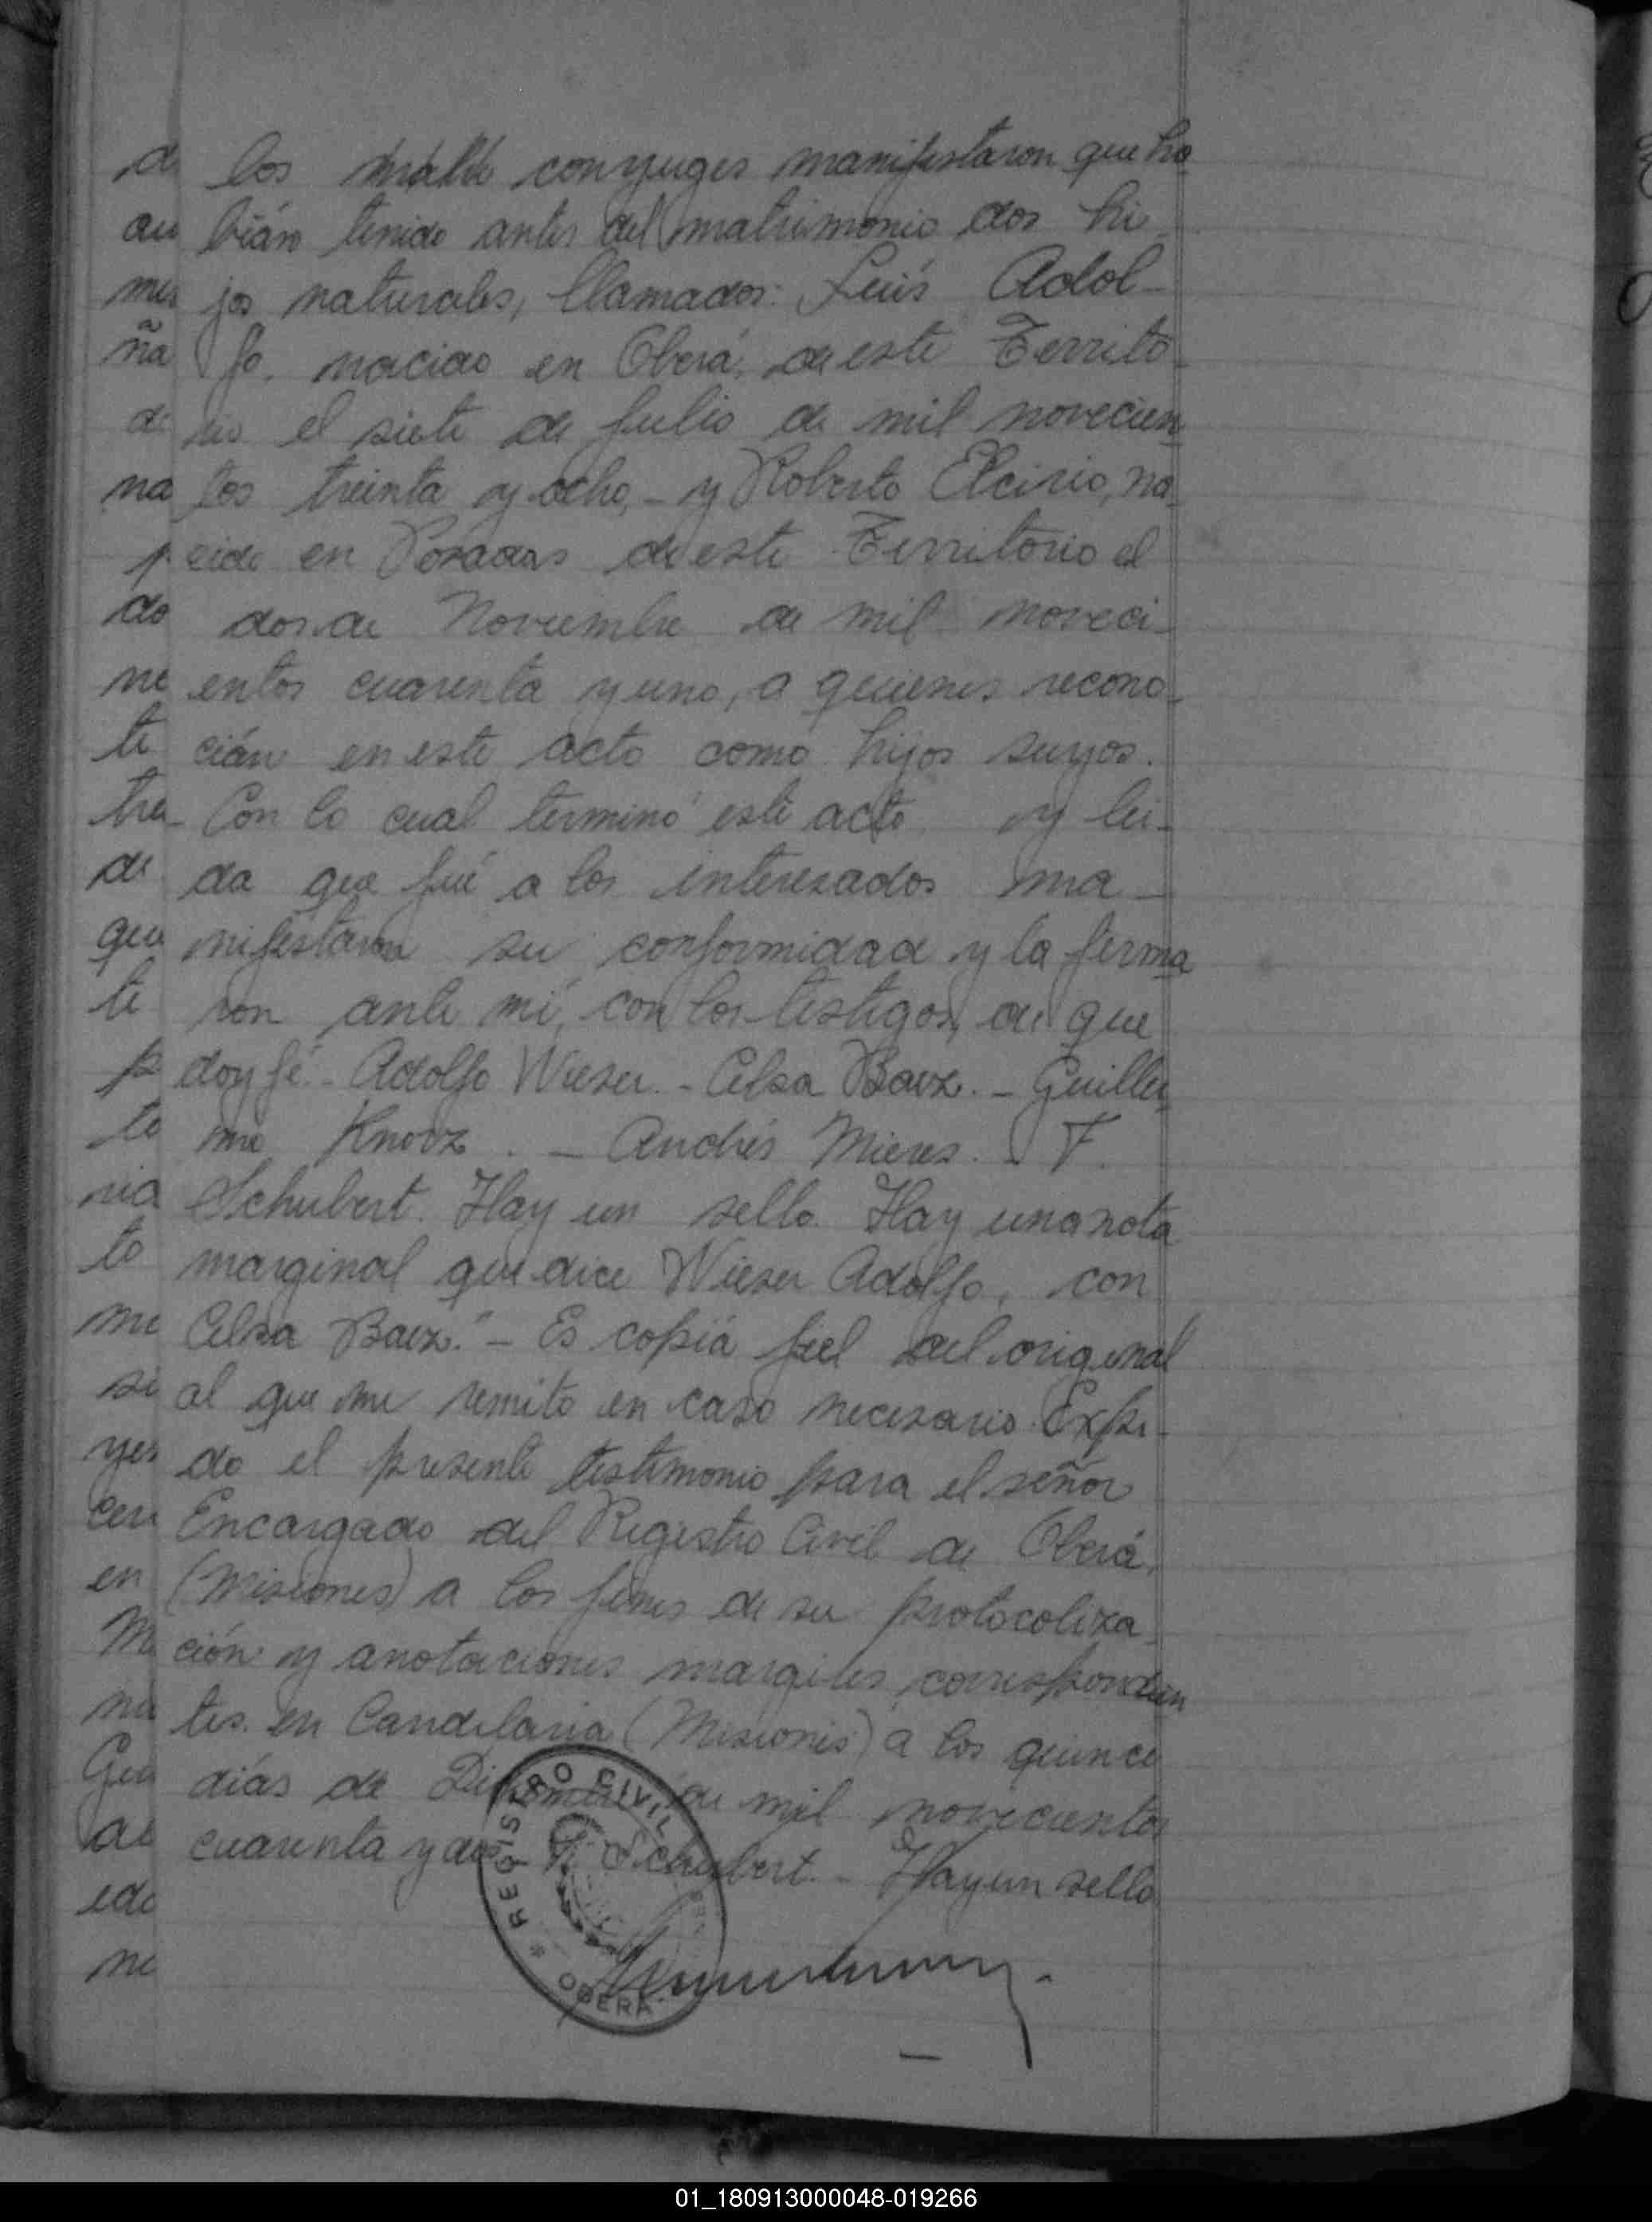 los conyuges manifestaron que ha
bián tenido antes del matrimonio dos hi-
jos naturales, llamados: Luís Adol-
fo, nacido en Oberá, de este Territo-
rio el siete de Julio de mil novecien
tos treinta y ocho, - y Roberto Elcirio, na
cido en Posadas de este Territorio el
dos de Noviembre de mil noveci-
entos cuarenta y uno, a quienes recono-
cián en este acto como hijos suyos.
Con lo cual terminó este acto y lei-
da que fué a los interesados ma-
nifestaron su conformidad y la firma
ron ante mí, con los testigos, de que
doy fé. - Adolfo Wieser. - Celsa Baez. - Guiller
mo - Andrés Mieres. - F.
Schubert. Hay un sello. Hay una nota
marginal que dice Wieser Adolfo, con
Celsa Baez." - Es copiá fiel del original
al que me remito en caso necesario. Expi-
do el presente testimonio para el señor
Encargado del Registro Civil de Oberá,
(Misiones) a los fines de su protocoliza
ción y anotaciones margiles correspondien
tes. en Candelaria (Misiones) a los quince
días de Diciembre de mil novecientos
cuarenta y dos F. Schubert. - Hay un sello
REGISTRO CIVIL
OBERÁ
01_180913000048-019266